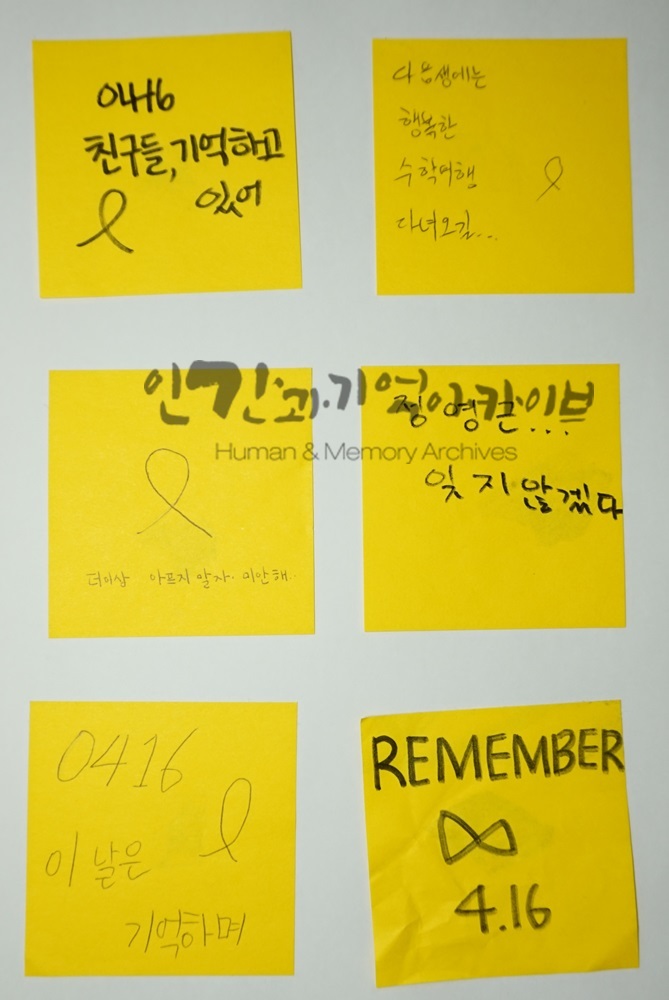 0416
친구들, 기억하고
있어
다음생에는
행복한
수학여행
다녀오길...
인간과기억아카이브
Human & Memory Archives
더이상 아프지 말자. 미안해..
잊지 않겠다
0416
이 날은
기억하며
REMEMBER
4.16